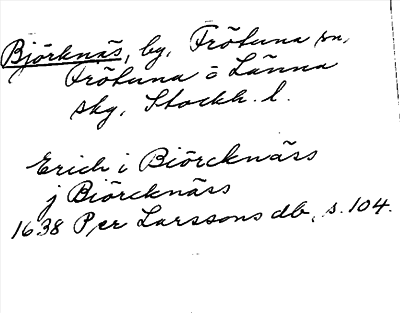 Björknäs, by, Frötuna sn,
Frötuna o Länna
skg, Stockh. l.
Erich i Biörcknäss
j Biörcknäss
1638 Per Larssons db, s. 104.